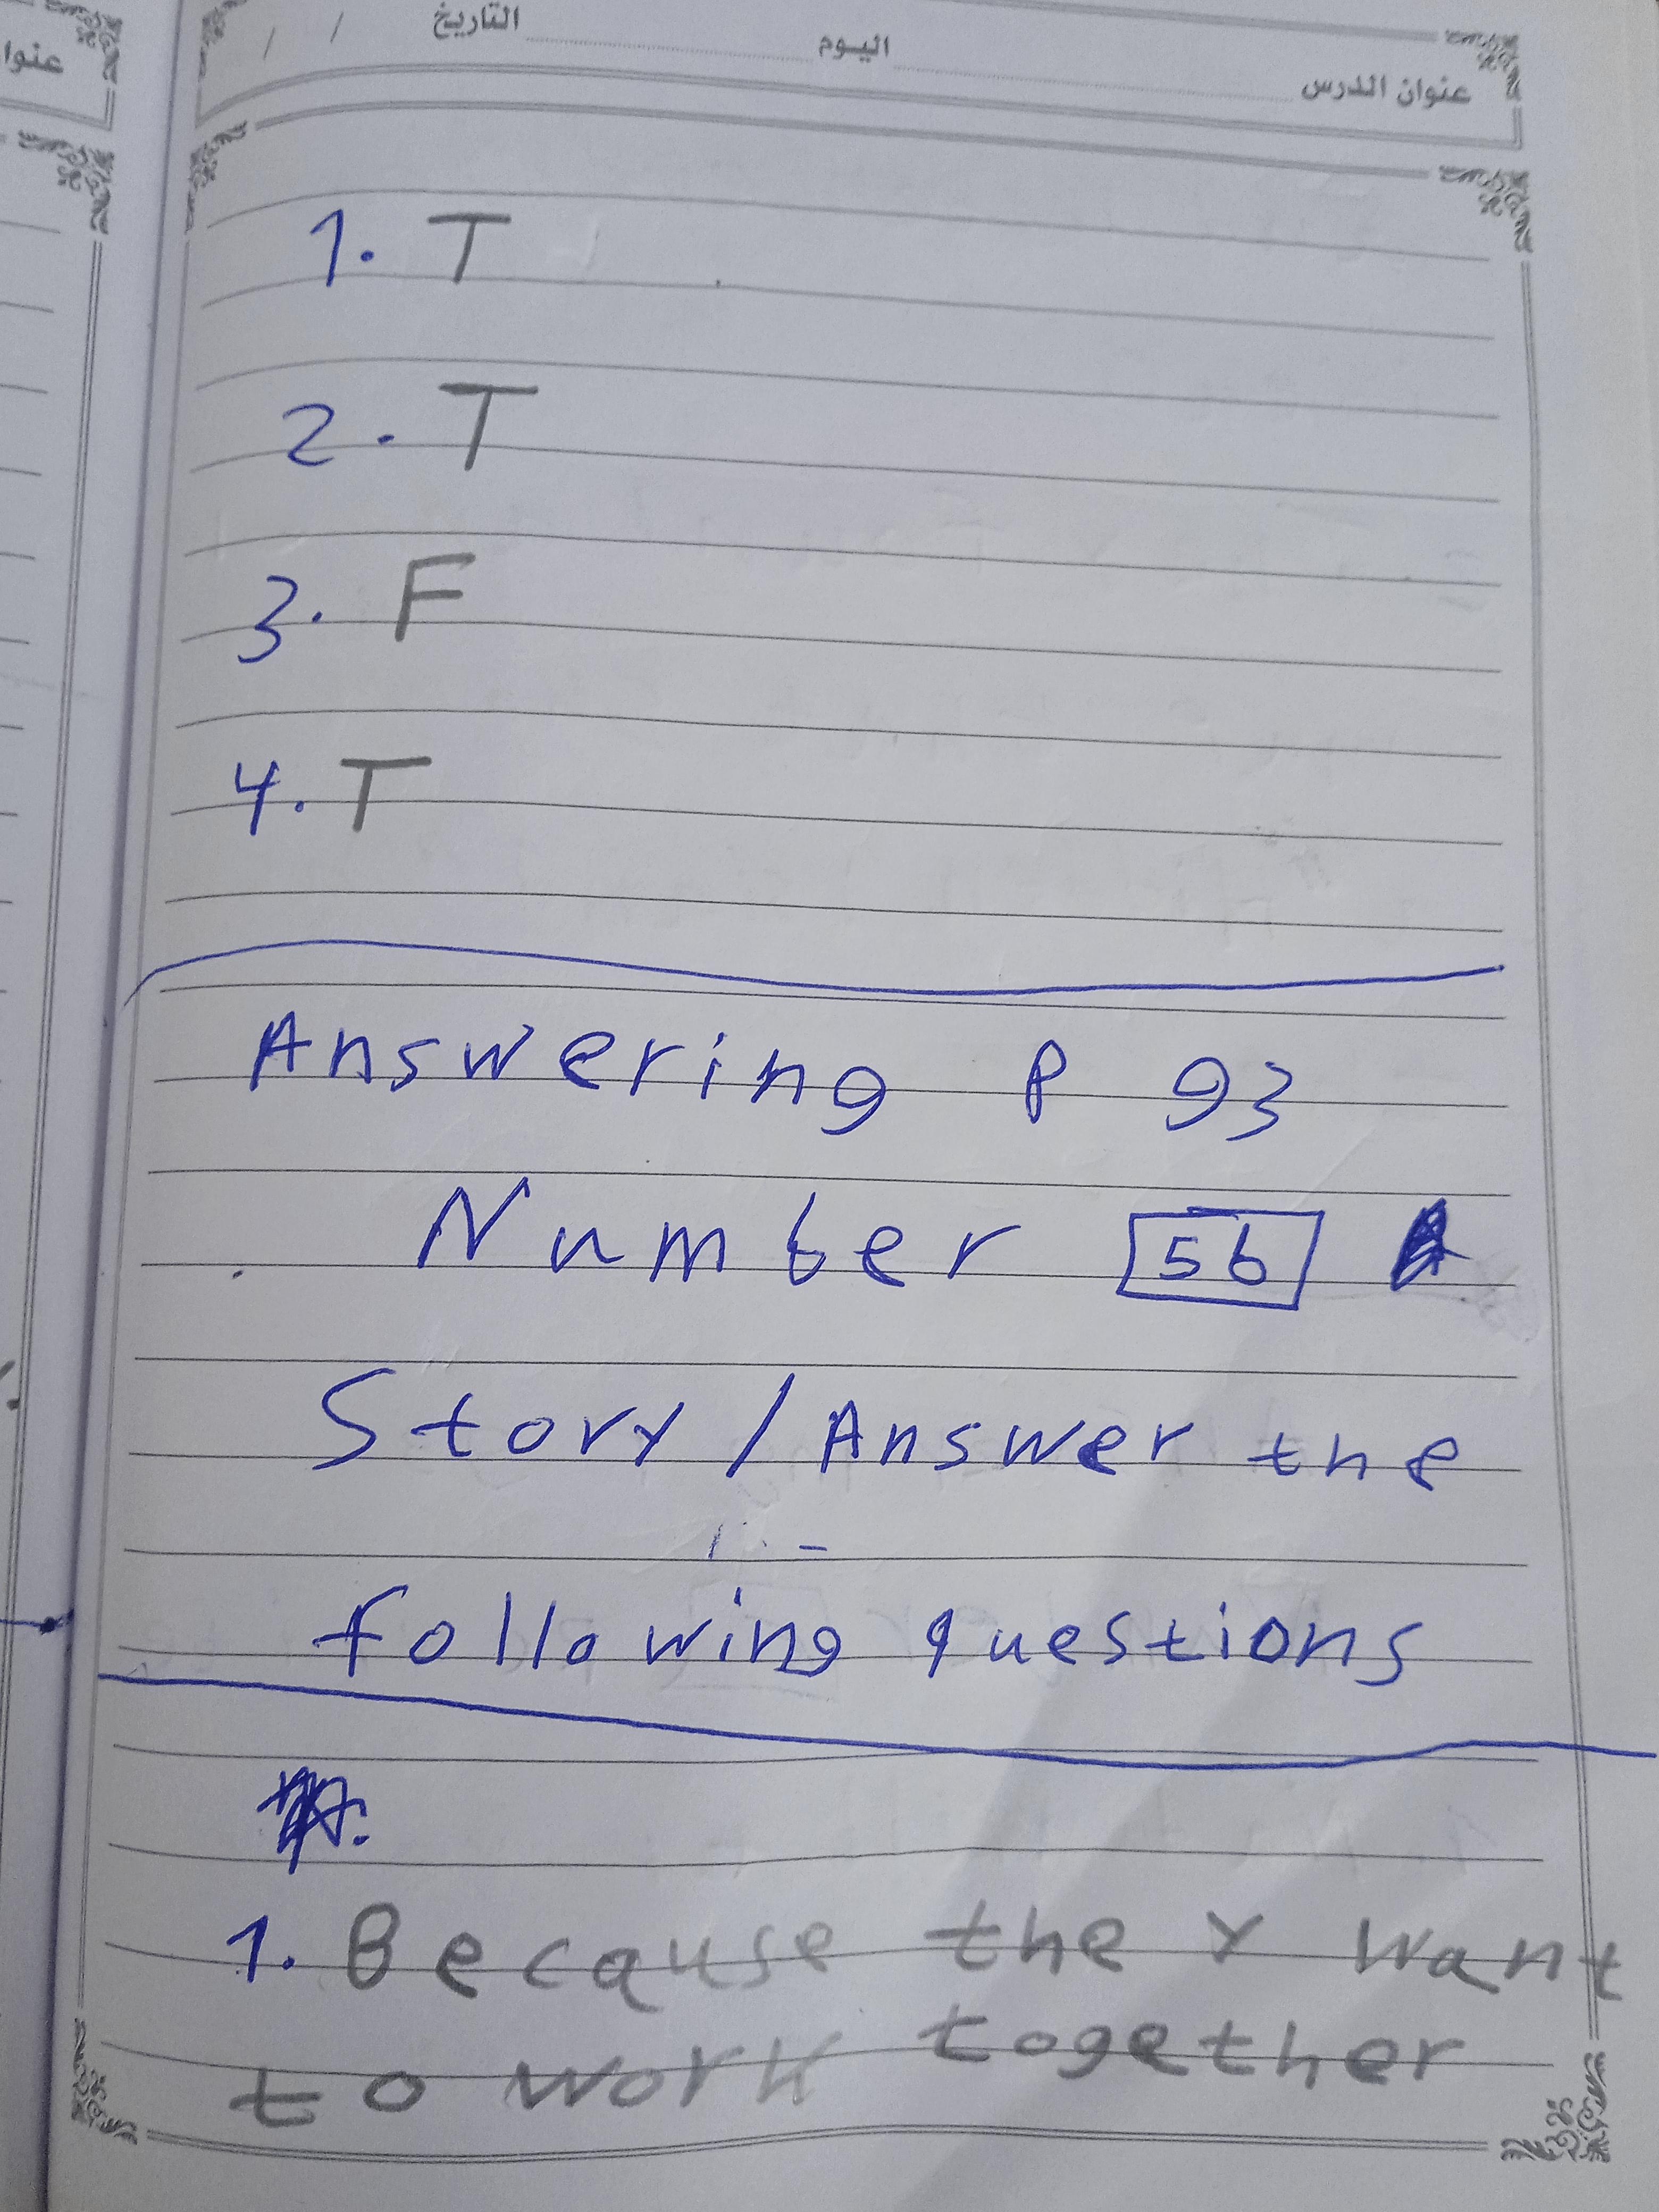 عنوان الدرس اليوم التاريخ / /
1. T
2. T
3. F
4. T
Answering P 93
Number 56
Story / Answer the
following questions
1. Because they want
to work together